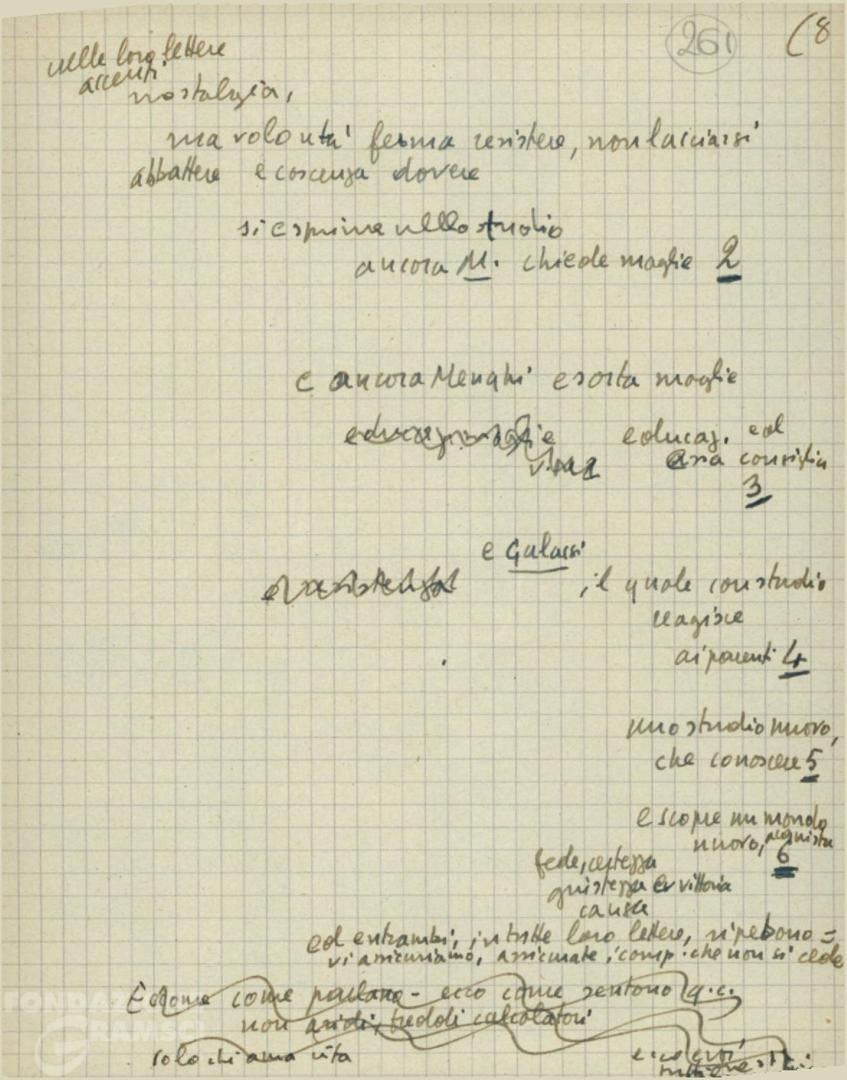 261 (8
nelle loro lettere
accenti
nostalgia,
ma volontà ferma resistere, non lasciarsi
abbattere e coscenza dovere
si esprime nello studio
ancora M. chiede moglie 2
e ancora Menghi esorta moglie
educaz. ed
consiglia
3
e Galassi
il quale con studio
reagisce
ai parenti 4
uno studio nuovo,
che conoscere 5
e scopre un mondo
nuovo, acquista
6
fede, certezza
giustezza e vittoria
causa
ed entrambi, in tutte loro lettere, ripetono =
vi assicuriamo, assicurate i comp. che non si cede
come parlano - ecco come sentono q.c.
non aridi, freddi calcolatori
solo chi ama vita
FONDAZIONE
GRAMSCI